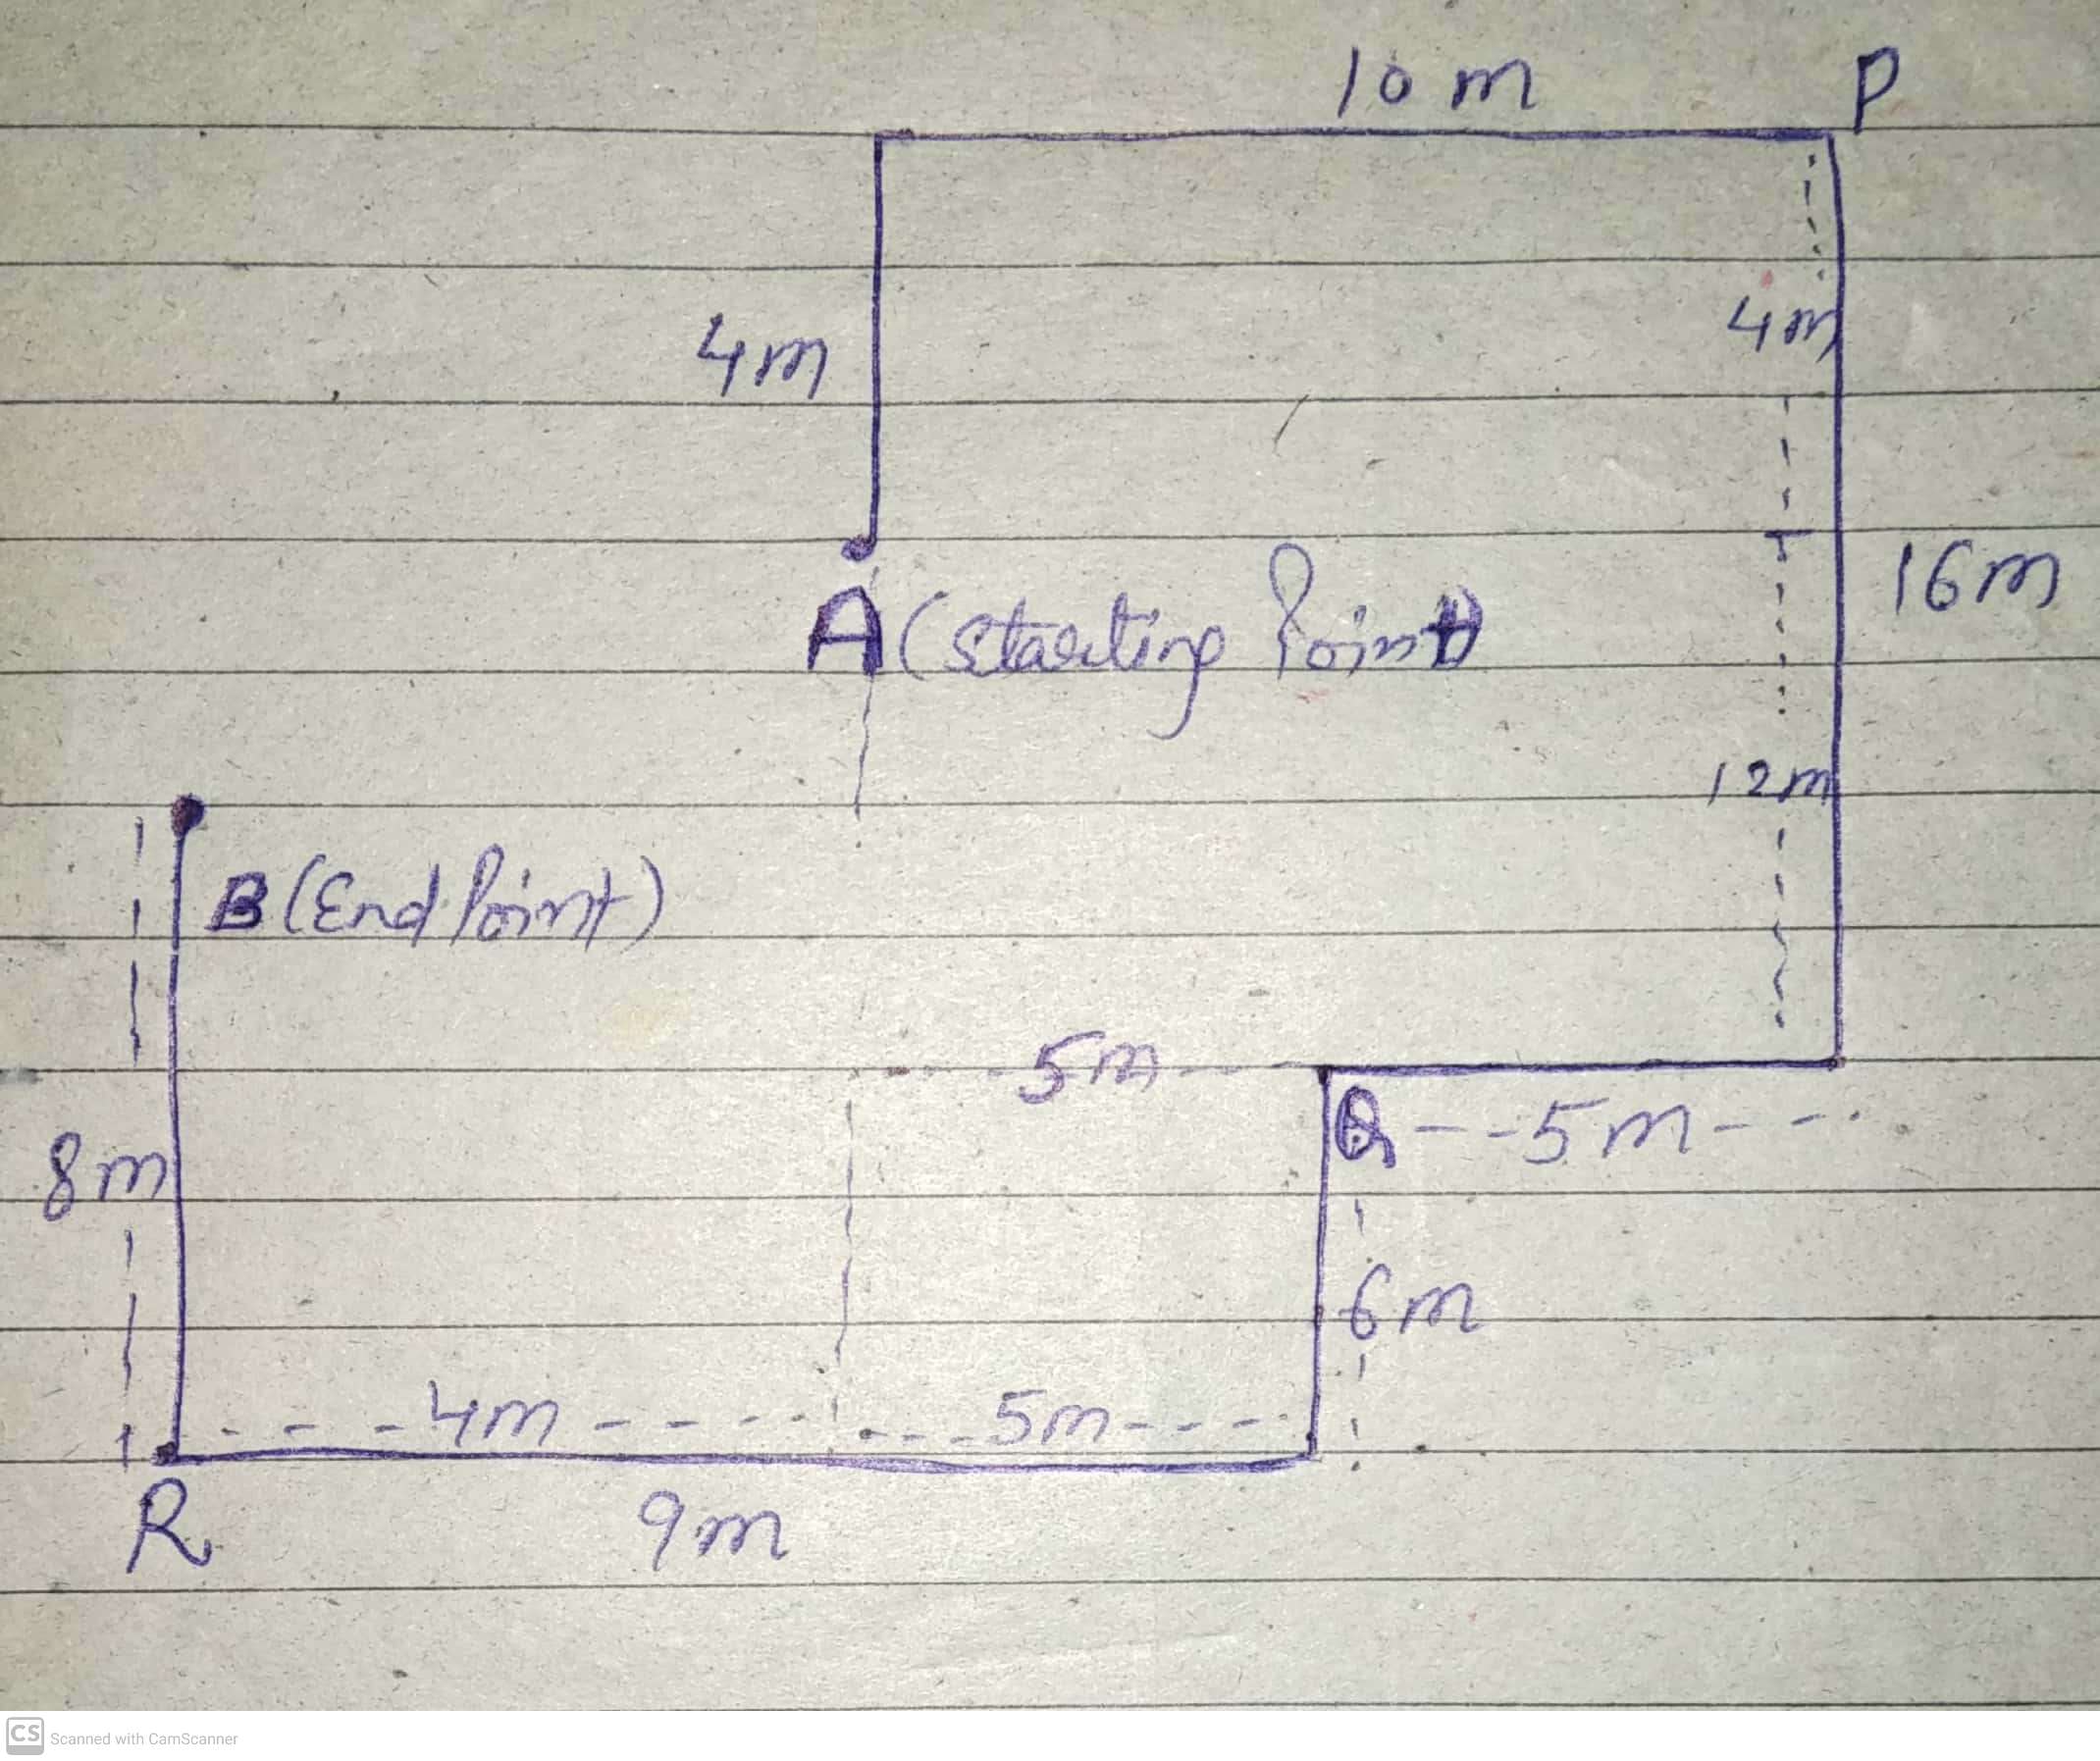 10 m P
4m
4m
A (Starting Point)
16m
12m
B (End Point)
5m
Q 5m
8m
6m
4m 5m
R 9m
CS Scanned with CamScanner